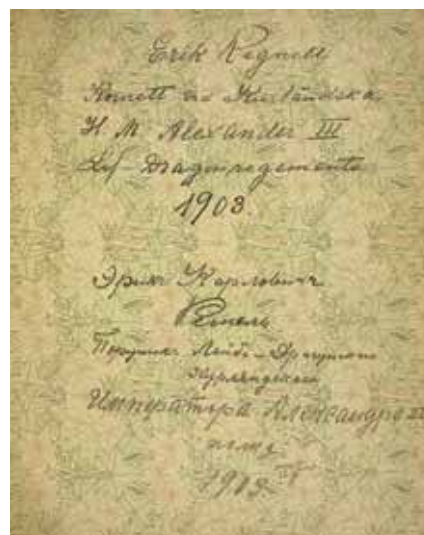 Erik Regnell
Kornett vid Kurländska
H M Alexander III
Lif-Dragonregemente
1903.
Эрикъ Карловичъ
Поручикъ Лейбъ-Драгунскаго
Курляндскаго
Императора Александра III
полка